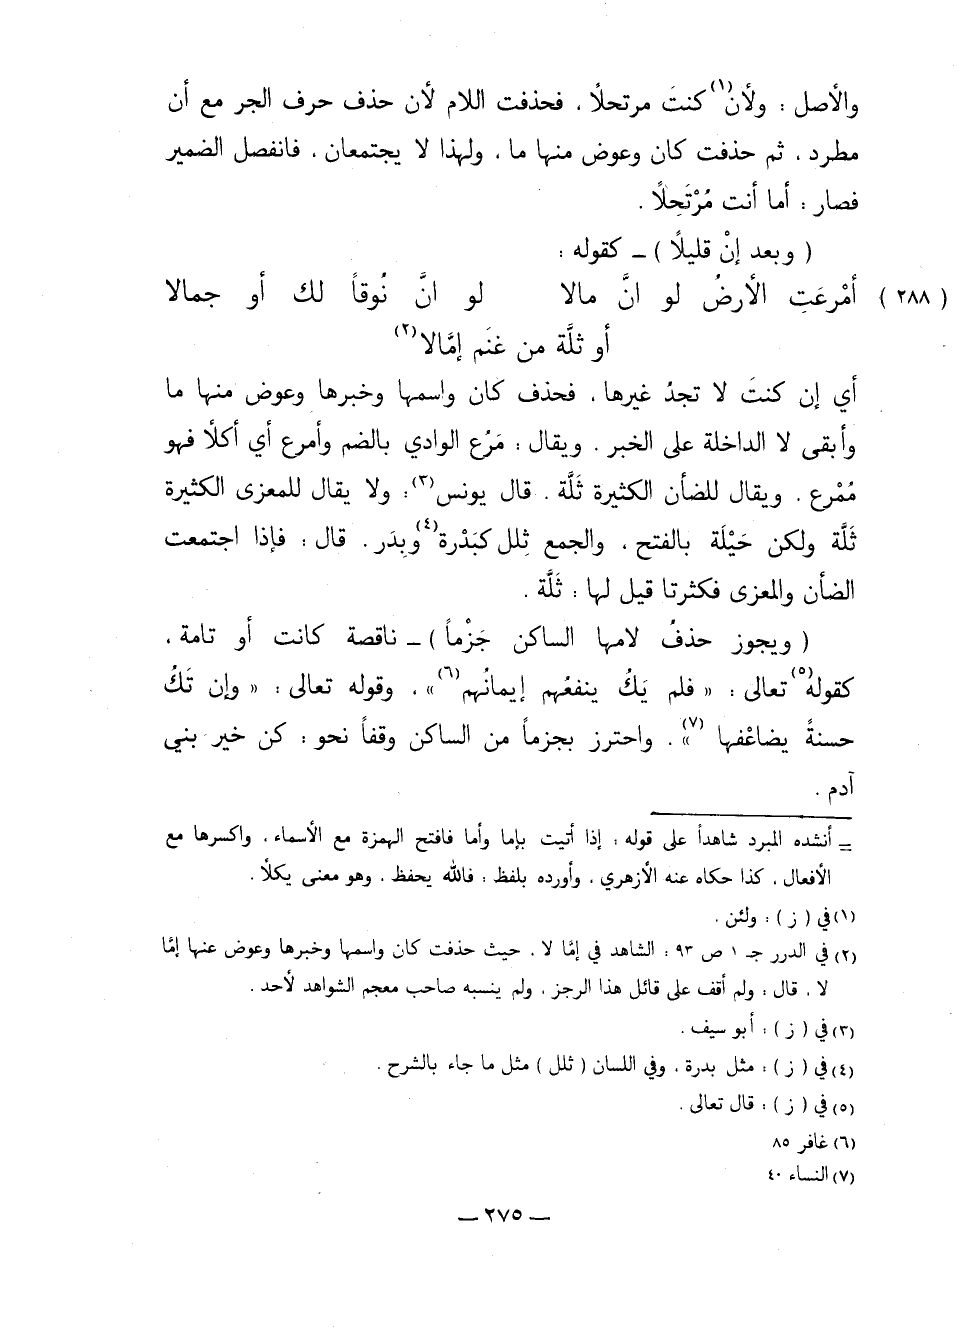 والأصل : ولأن(١) كنتَ مرتحلًا ، فحذفت اللام لأن حذف حرف الجر مع أن
مطرد ، ثم حذفت كان وعوض منها ما ، ولهذا لا يجتمعان ، فانفصل الضمير
فصار : أما أنت مُرْتَحِلًا .
( وبعد إنْ قليلًا ) ــ كقوله :
( ٢٨٨ ) أمْرعَتِ الأرضُ لو انَّ مالا لو انَّ نُوقاً لك أو جمالا
أو ثلَّة من غنَم إمَّالا(٢)
أي إن كنتَ لا تجدُ غيرها ، فحذف كان واسمها وخبرها وعوض منها ما
وأبقى لا الداخلة على الخبر . ويقال : مَرُع الوادي بالضم وأمرع أي أكلأ فهو
مُمْرع . ويقال للضأن الكثيرة ثَلَّة . قال يونس(٣) : ولا يقال للمعزى الكثيرة
ثَلَّة ولكن حَيْلَة بالفتح ، والجمع ثِلل كبَدْرة(٤) وبِدَر . قال : فإذا اجتمعت
الضأن والمعزى فكثرتا قيل لها : ثَلَّة .
( ويجوز حذفُ لامها الساكن جَزْماً ) ــ ناقصة كانت أو تامة ،
كقوله(٥) تعالى : « فلم يَكُ ينفعُهم إيمانُهم(٦) » ، وقوله تعالى : « وإن تَكُ
حسنةً يضاعْفها (٧) » . واحترز بجزماً من الساكن وقفاً نحو : كن خير بني
آدم .
= أنشده المبرد شاهداً على قوله : إذا أتيت بإما وأما فافتح الهمزة مع الأسماء ، واكسرها مع
الأفعال ، كذا حكاه عنه الأزهري ، وأورده بلفظ : فالله يحفظ ، وهو معنى يكلأ .
(١) في ( ز ) : ولئن .
(٢) في الدرر جـ ١ ص ٩٣ : الشاهد في إمَّا لا ، حيث حذفت كان واسمها وخبرها وعوض عنها إمَّا
لا ، قال : ولم أقف على قائل هذا الرجز ، ولم ينسبه صاحب معجم الشواهد لأحد .
(٣) في ( ز ) : أبو سيف .
(٤) في ( ز ) : مثل بدرة ، وفي اللسان ( ثلل ) مثل ما جاء بالشرح .
(٥) في ( ز ) : قال تعالى .
(٦) غافر ٨٥
(٧) النساء ٤٠
ــ ٢٧٥ ــ